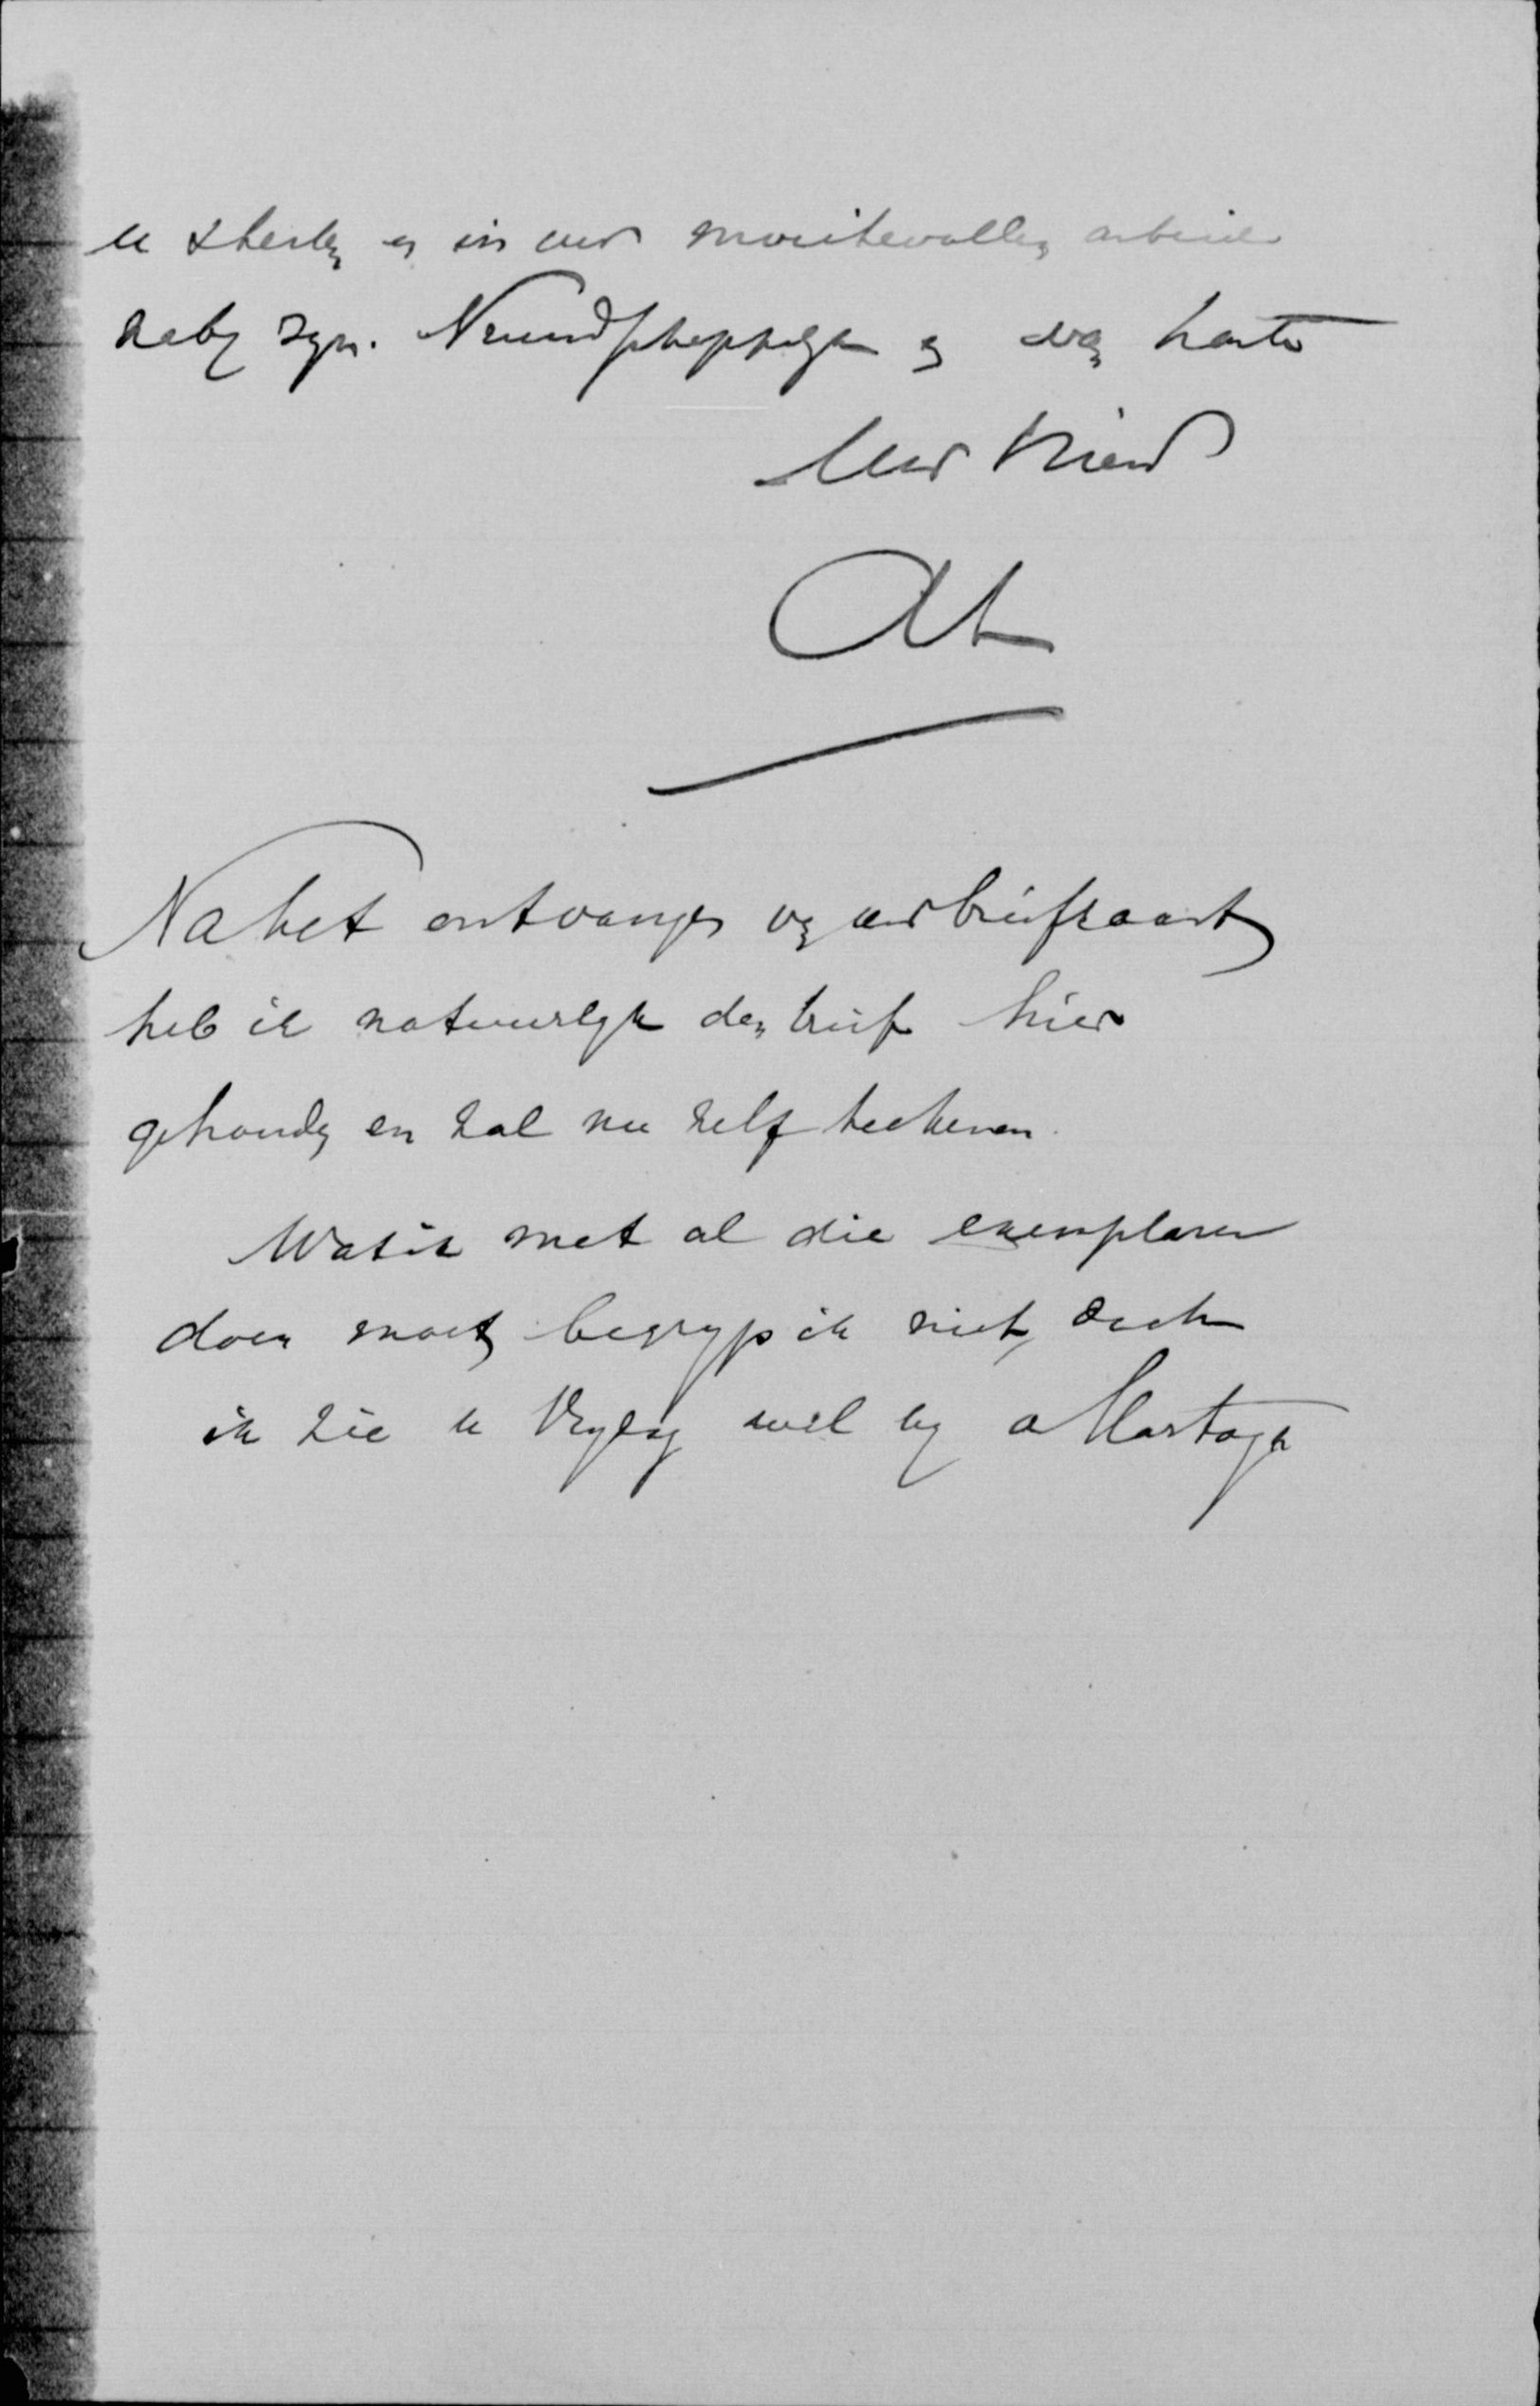 u sterken en in uw moeitevollen arbeid
nabij zijn. Vriendschappelijk en van harte
Uw Vriend
Na het ontvangen van uw briefkaart
heb ik natuurlijk den brief hier
gehouden en zal nu zelf teekenen.
Wat ik met al die exemplaren
doen moet, begrijp ik niet, doch
ik zie u Vrijdag wel bij a Hartogh